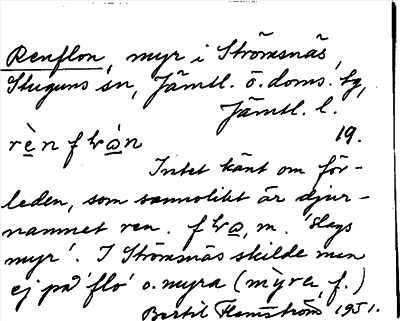 Renflon, myr i Strömsnäs,
Stuguns sn, Jämtl. ö. doms. tg,
Jämtl. l.
19.
Intet känt om för-
leden, som sannolikt är djur-
namnet ren. m. 'slags
myr'. I Strömsnäs skilde men
ej på 'flo' o. myra (mỳra, f.)
Bertil Flemström 1951.